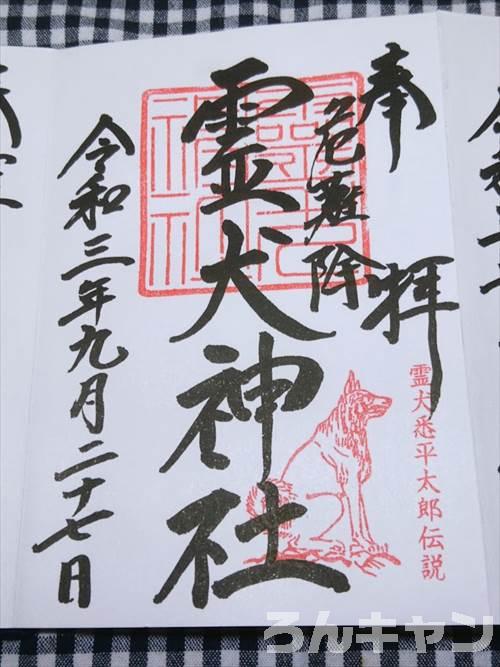 奉拝
危難除
霊犬神社
令和三年九月二十七日
霊犬悉平太郎伝説
ろんキャン